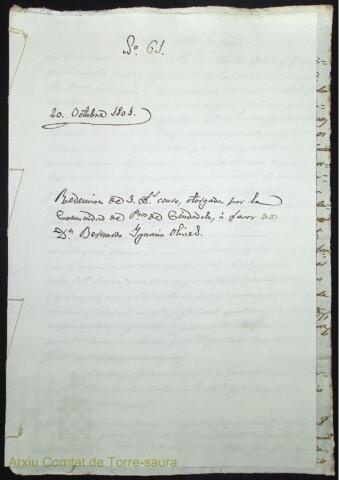 No. 61.
20. Octubre 1801.
Redencion de 3. L.s censo, otorgada por la
Comunidad de P.ros de Ciudadela, á favor de
D.n Bernardo Ygnacio Olives.
Arxiu Comtat de Torre-saura